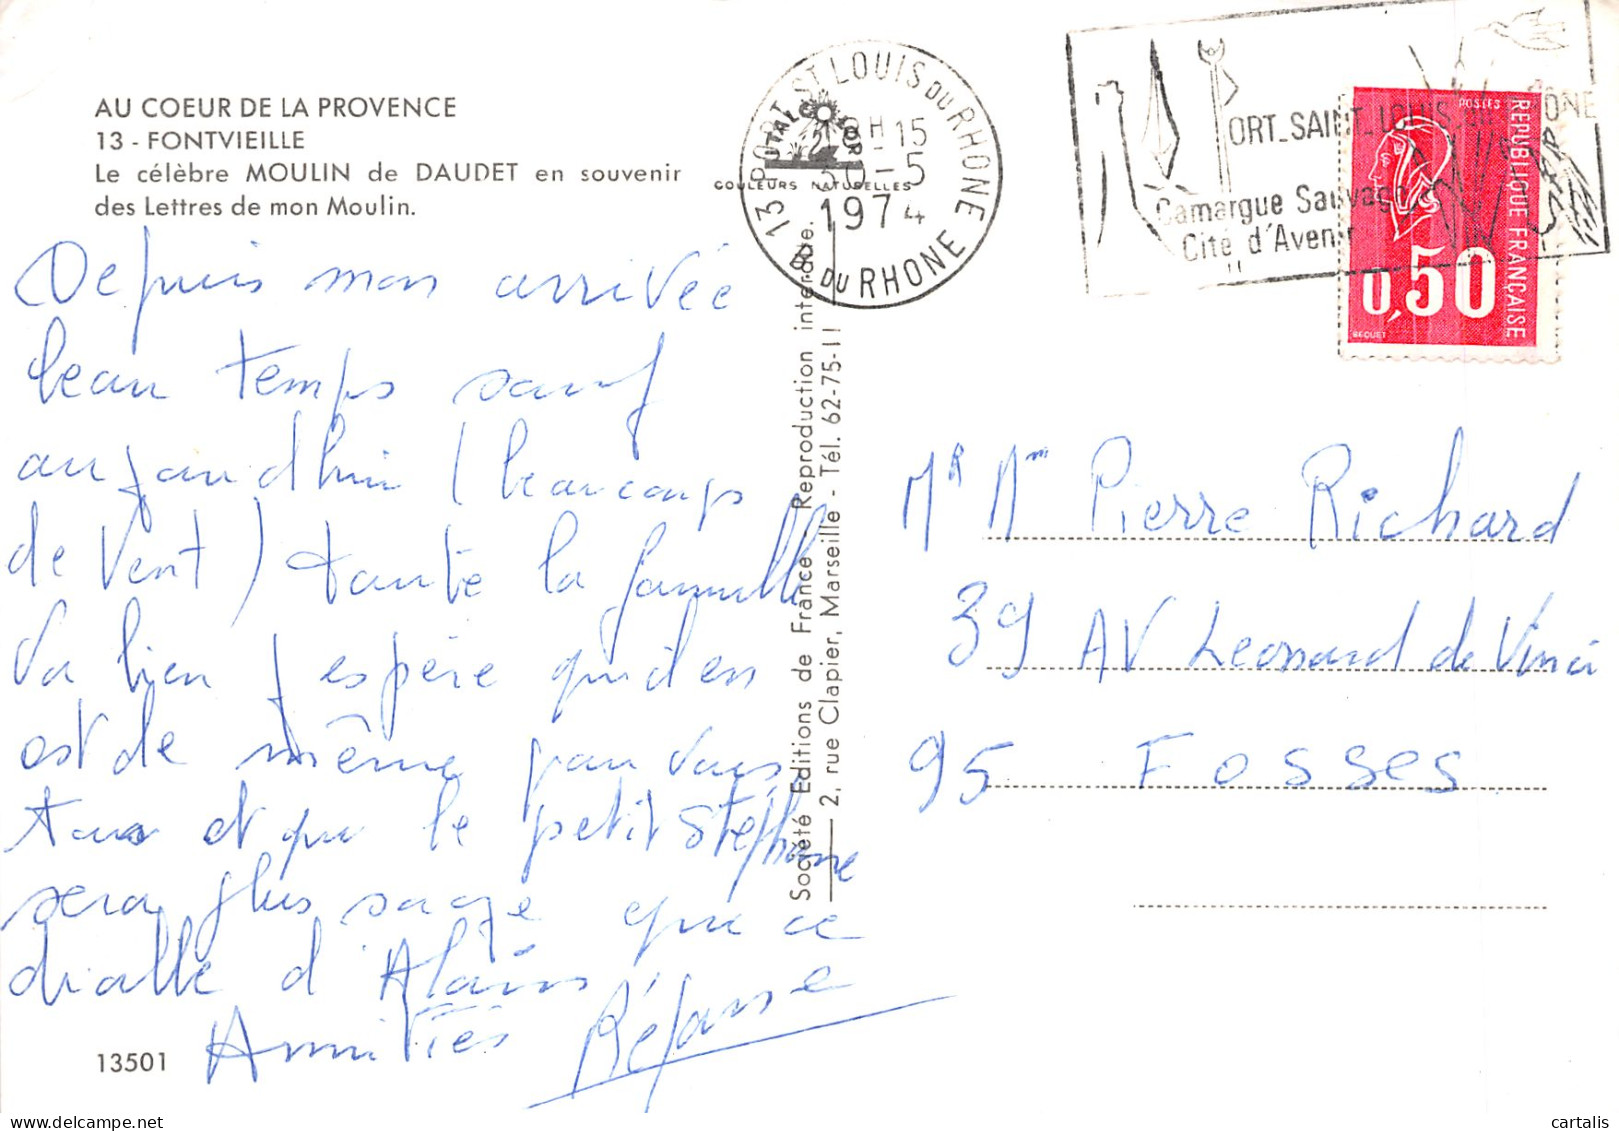 AU COEUR DE LA PROVENCE
13 - FONTVIEILLE
Le célèbre MOULIN de DAUDET en souvenir
des Lettres de mon Moulin.
Depuis mon arrivée
beau temps sauf
aujourd'hui (beaucoup
de vent) toute la famille
va bien j espère qu'il en
est de même pour vous
tous et que le petit Stéphane
sera plus sage que ce
diable d'Alain
Amitiés
13501
Société Editions de France - Reproduction interdite.
2, rue Clapier, Marseille - Tél. 62-75-11
COULEURS NATURELLES
13 PORT ST LOUIS DU RHONE
B. DU RHONE
H 15
30-5
1974
ORT_SAINT_LOUIS
RHONE
Camargue Sauvage
Cité d'Avenir
POSTES
REPUBLIQUE FRANÇAISE
0,50
BEQUET
Mr Mm Pierre Richard
39 AV Leonard de Vinci
95 Fosses
cartalis